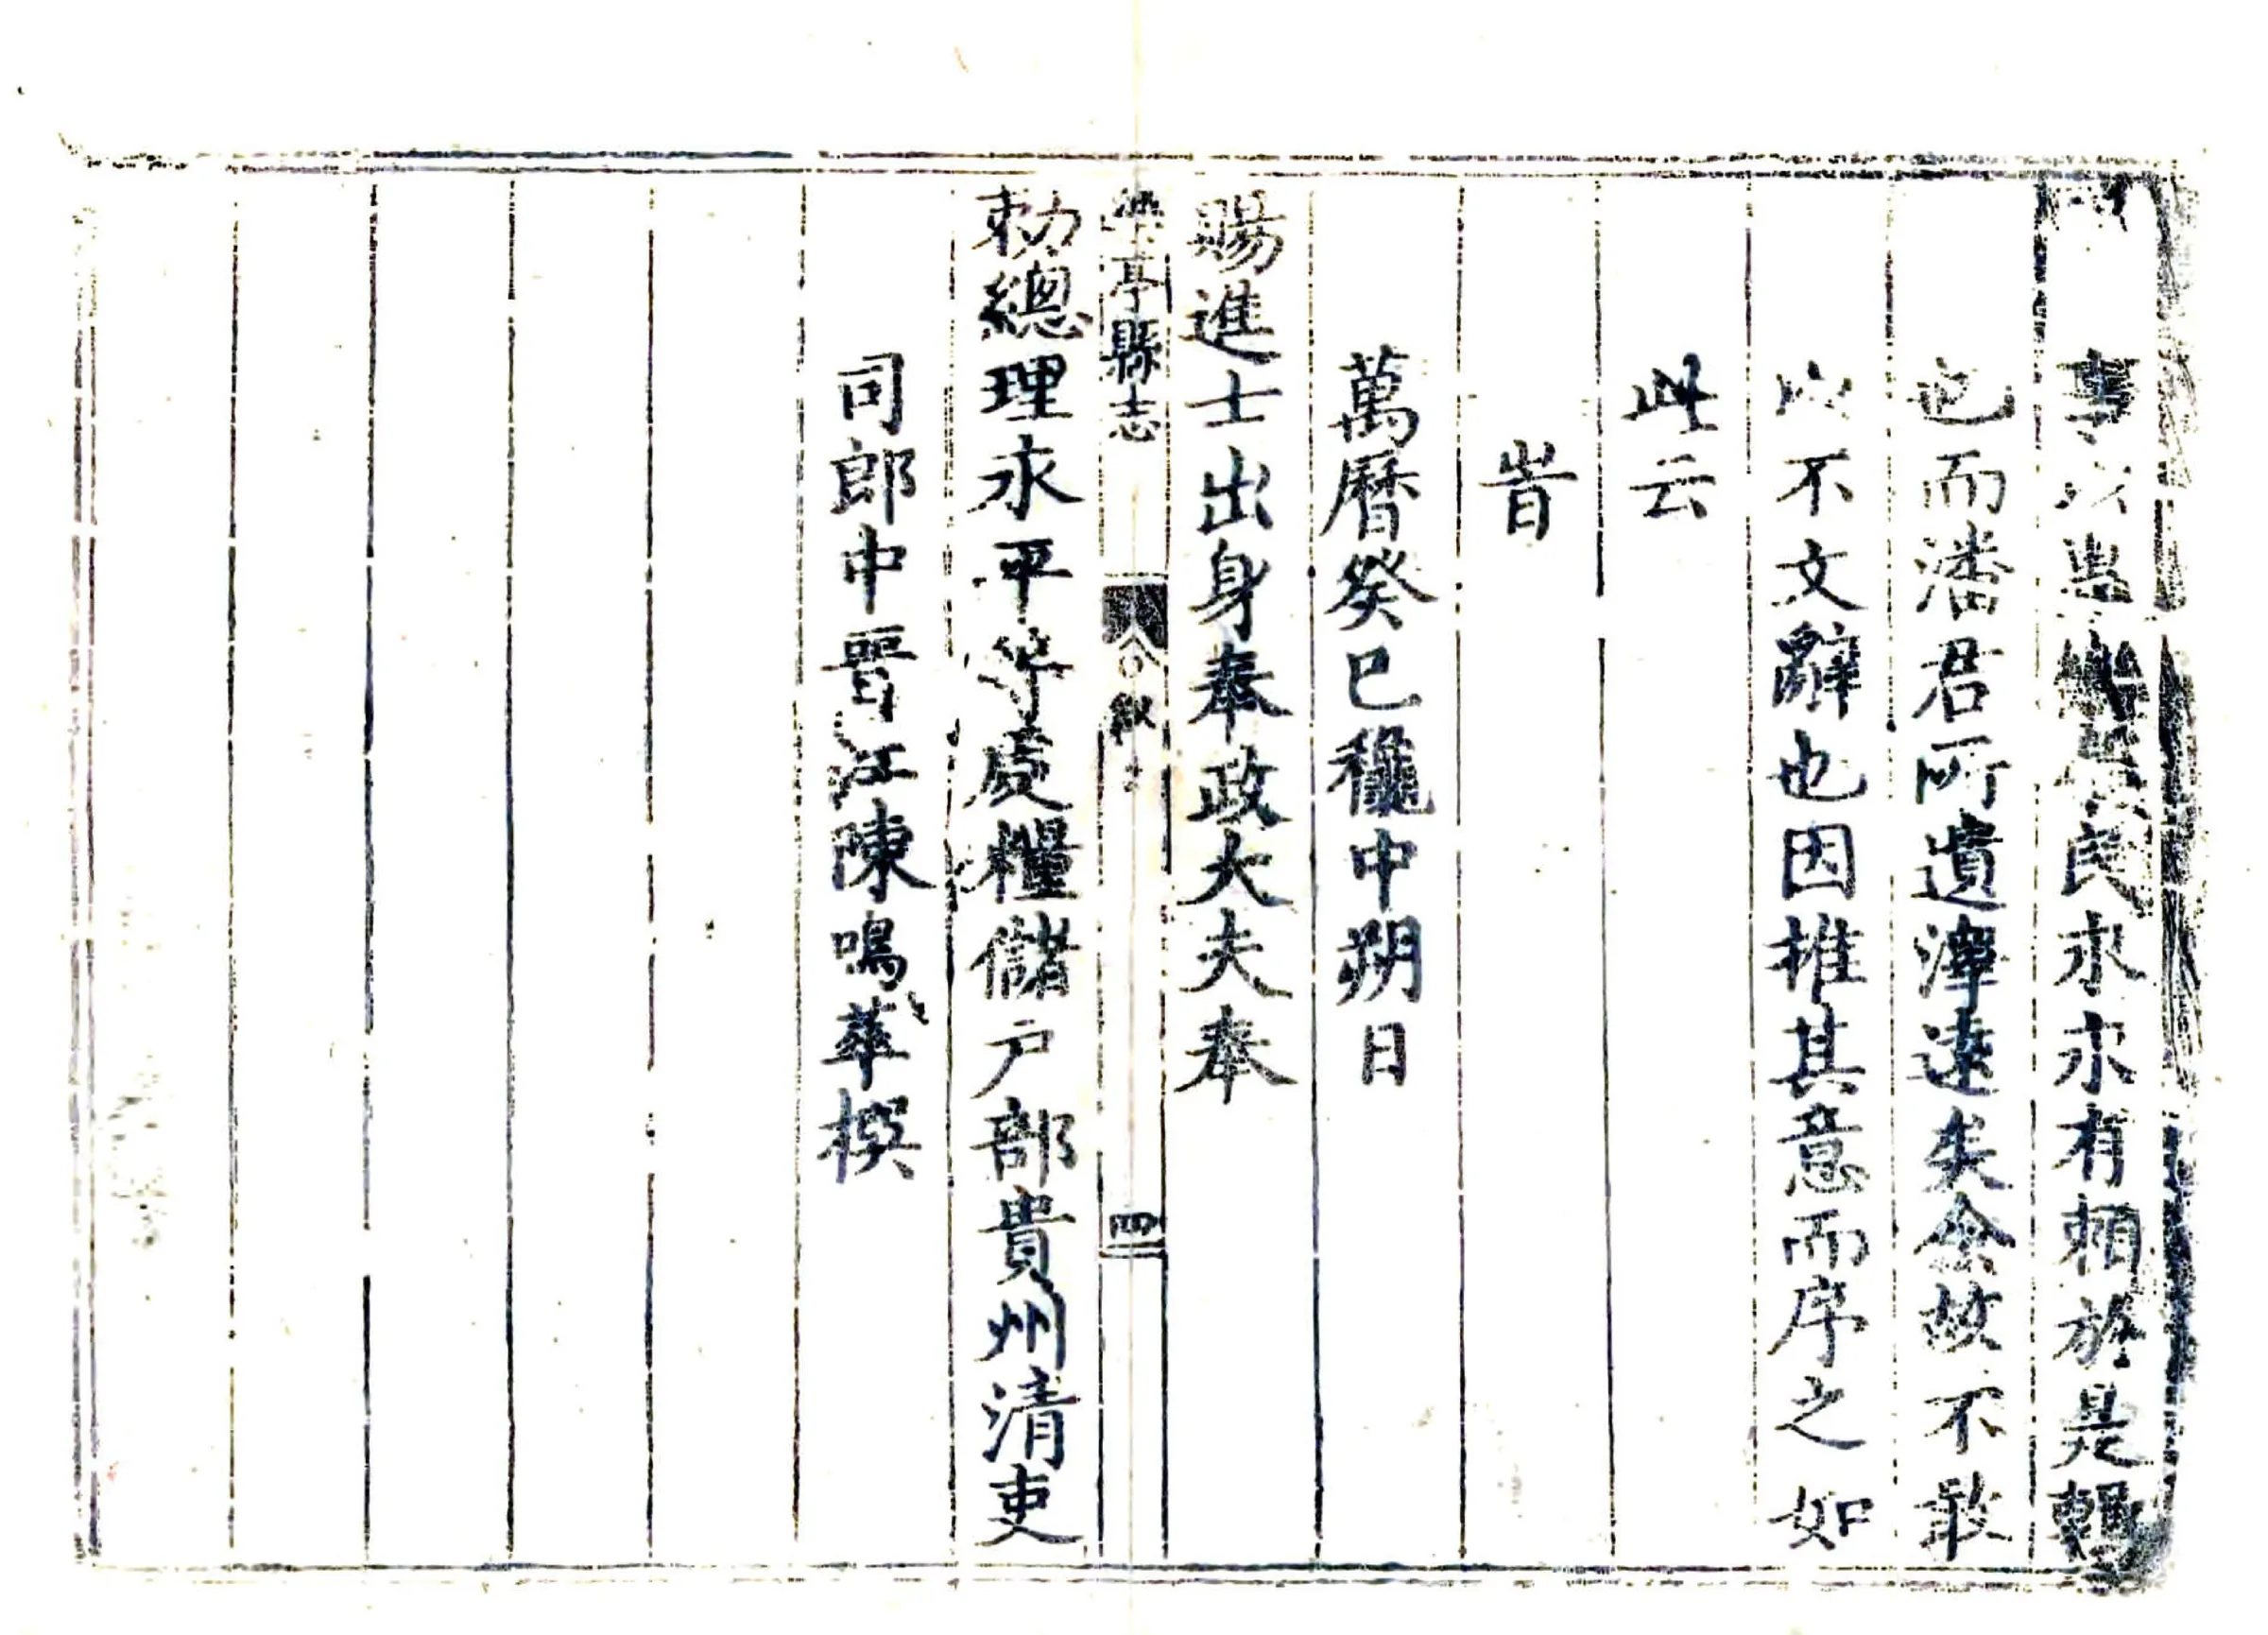 事以惠樂民永永有賴於是輯
也而潘君所遺澤遠矣余故不敢
以不文辭也因推其意而序之如
此云
旹
萬曆癸巳龝中朔日
賜進士出身奉政大夫奉
樂亭縣志
叙
四
勑總理永平等處糧儲户部貴州清吏
司郎中晋江陳鳴華撰